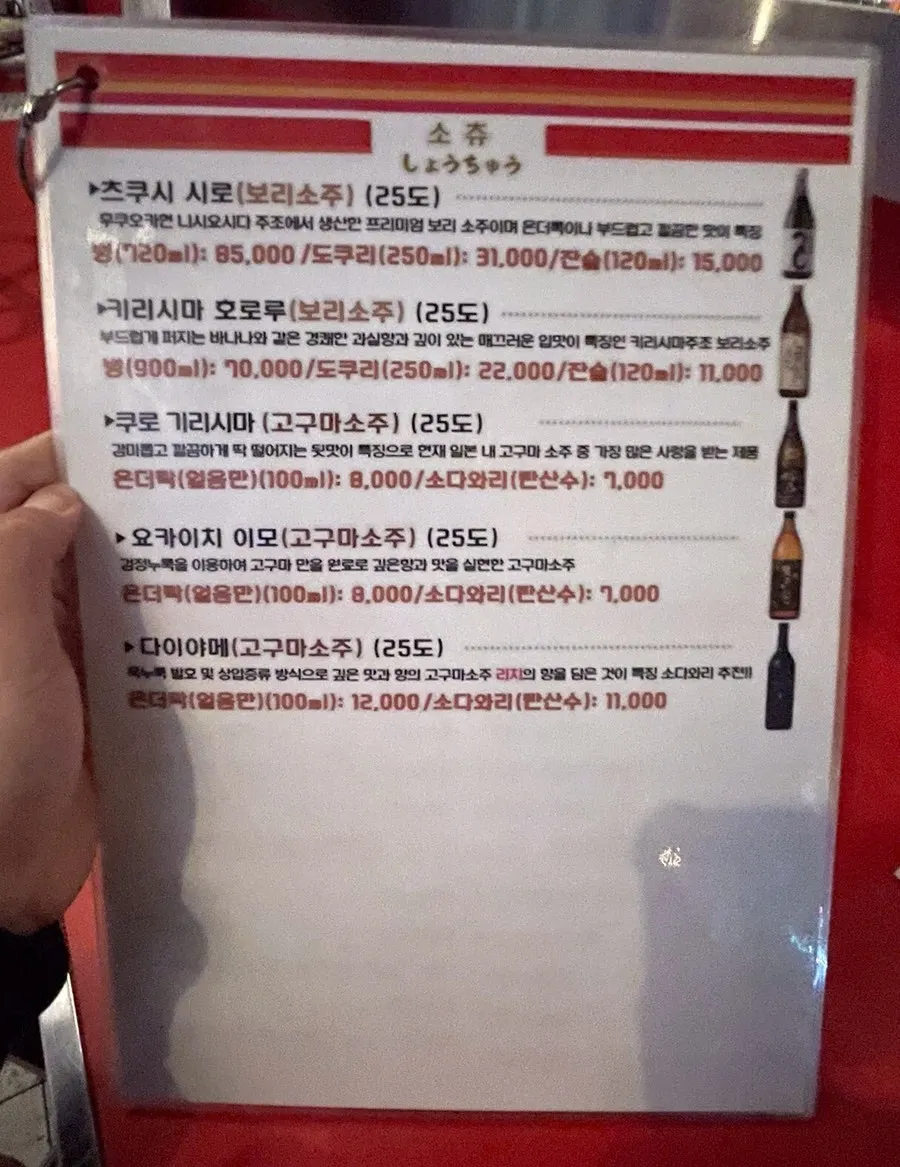 소츄
しょうちゅう
▶츠쿠시 시로(보리소주) (25도)
후쿠오카현 니시요시다 주조에서 생산한 프리미엄 보리 소주이며 온더록이나 부드럽고 깔끔한 맛이 특징
병(720ml): 85,000 /도쿠리(250ml): 31,000/잔술(120ml): 15,000
▶키리시마 호로루(보리소주) (25도)
부드럽게 퍼지는 바나나와 같은 경쾌한 과실향과 깊이 있는 매끄러운 입맛이 특징인 키리시마주조 보리소주
병(900ml): 70,000/도쿠리(250ml): 22,000/잔술(120ml): 11,000
▶쿠로 기리시마 (고구마소주) (25도)
감미롭고 깔끔하게 딱 떨어지는 뒷맛이 특징으로 현재 일본 내 고구마 소주 중 가장 많은 사랑을 받는 제품
온더락(얼음만)(100ml): 8,000/소다와리(탄산수): 7,000
▶ 요카이치 이모(고구마소주) (25도)
검정누룩을 이용하여 고구마 만을 원료로 깊은향과 맛을 실현한 고구마소주
온더락(얼음만)(100ml): 8,000/소다와리(탄산수): 7,000
▶ 다이야메(고구마소주) (25도)
흑누룩 발효 및 상압증류 방식으로 깊은 맛과 향의 고구마소주 리치의 향을 담은 것이 특징 소다와리 추천!!
온더락(얼음만)(100ml): 12,000/소다와리(탄산수): 11,000